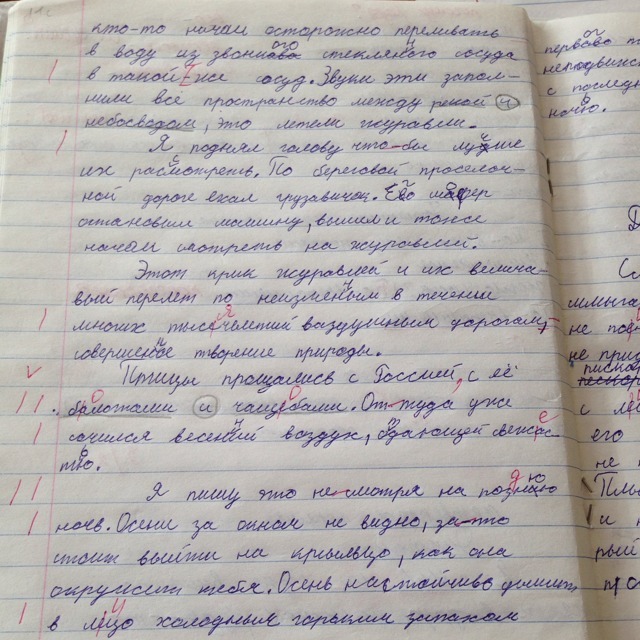 кто-то начал осторожно переливать
в воду из звонкого стеклянного сосуда
в такой же сосуд. Звуки эти запол-
нили все пространство между рекой и
небосводом, это летели журавли.
Я поднял голову что-бы лучше
их рассмотреть. По береговой проселоч-
ной дороге ехал грузавичок. Его шофер
остановил машину, вышел и тоже
начал смотреть на журавлей.
Этот крик журавлей и их велича-
вый перелет по неизменным в течении
многих тысячелетий воздушным дорогам,
совершенное творение природы.
Птицы прощались с Россией, с её
болотами и чащобами. От-туда уже
сочился весенний воздух, отдающей свежес-
тью.
Я пишу это не-смотря на позднюю
ночь. Осени за окном не видно, за-то
стоит выйти на крыльцо, как она
окружит тебя. Осень настойчиво дышит
в лицо холодным горьким запахом
первого
с послед
ночью.
не при
с лё
его
не п
и н
рый